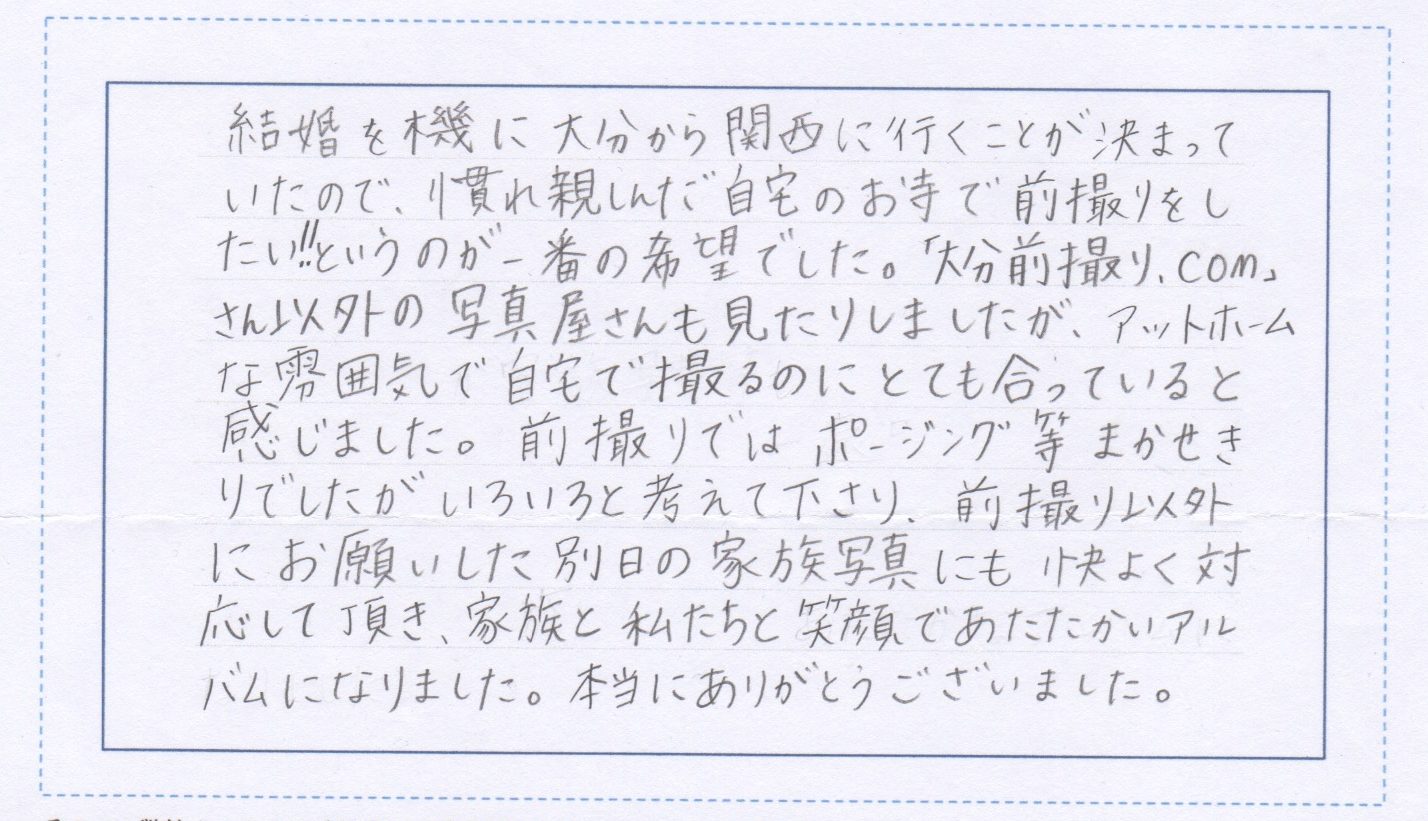 結婚を機に大分から関西に行くことが決まって
いたので、慣れ親しんだ自宅のお寺で前撮りをし
たい!!というのが一番の希望でした。「大分前撮り.com」
さん以外の写真屋さんも見たりしましたが、アットホーム
な雰囲気で自宅で撮るのにとても合っていると
感じました。前撮りではポージング等まかせき
りでしたがいろいろと考えて下さり、前撮り以外
にお願いした別日の家族写真にも快よく対
応して頂き、家族と私たちと笑顔であたたかいアル
バムになりました。本当にありがとうございました。